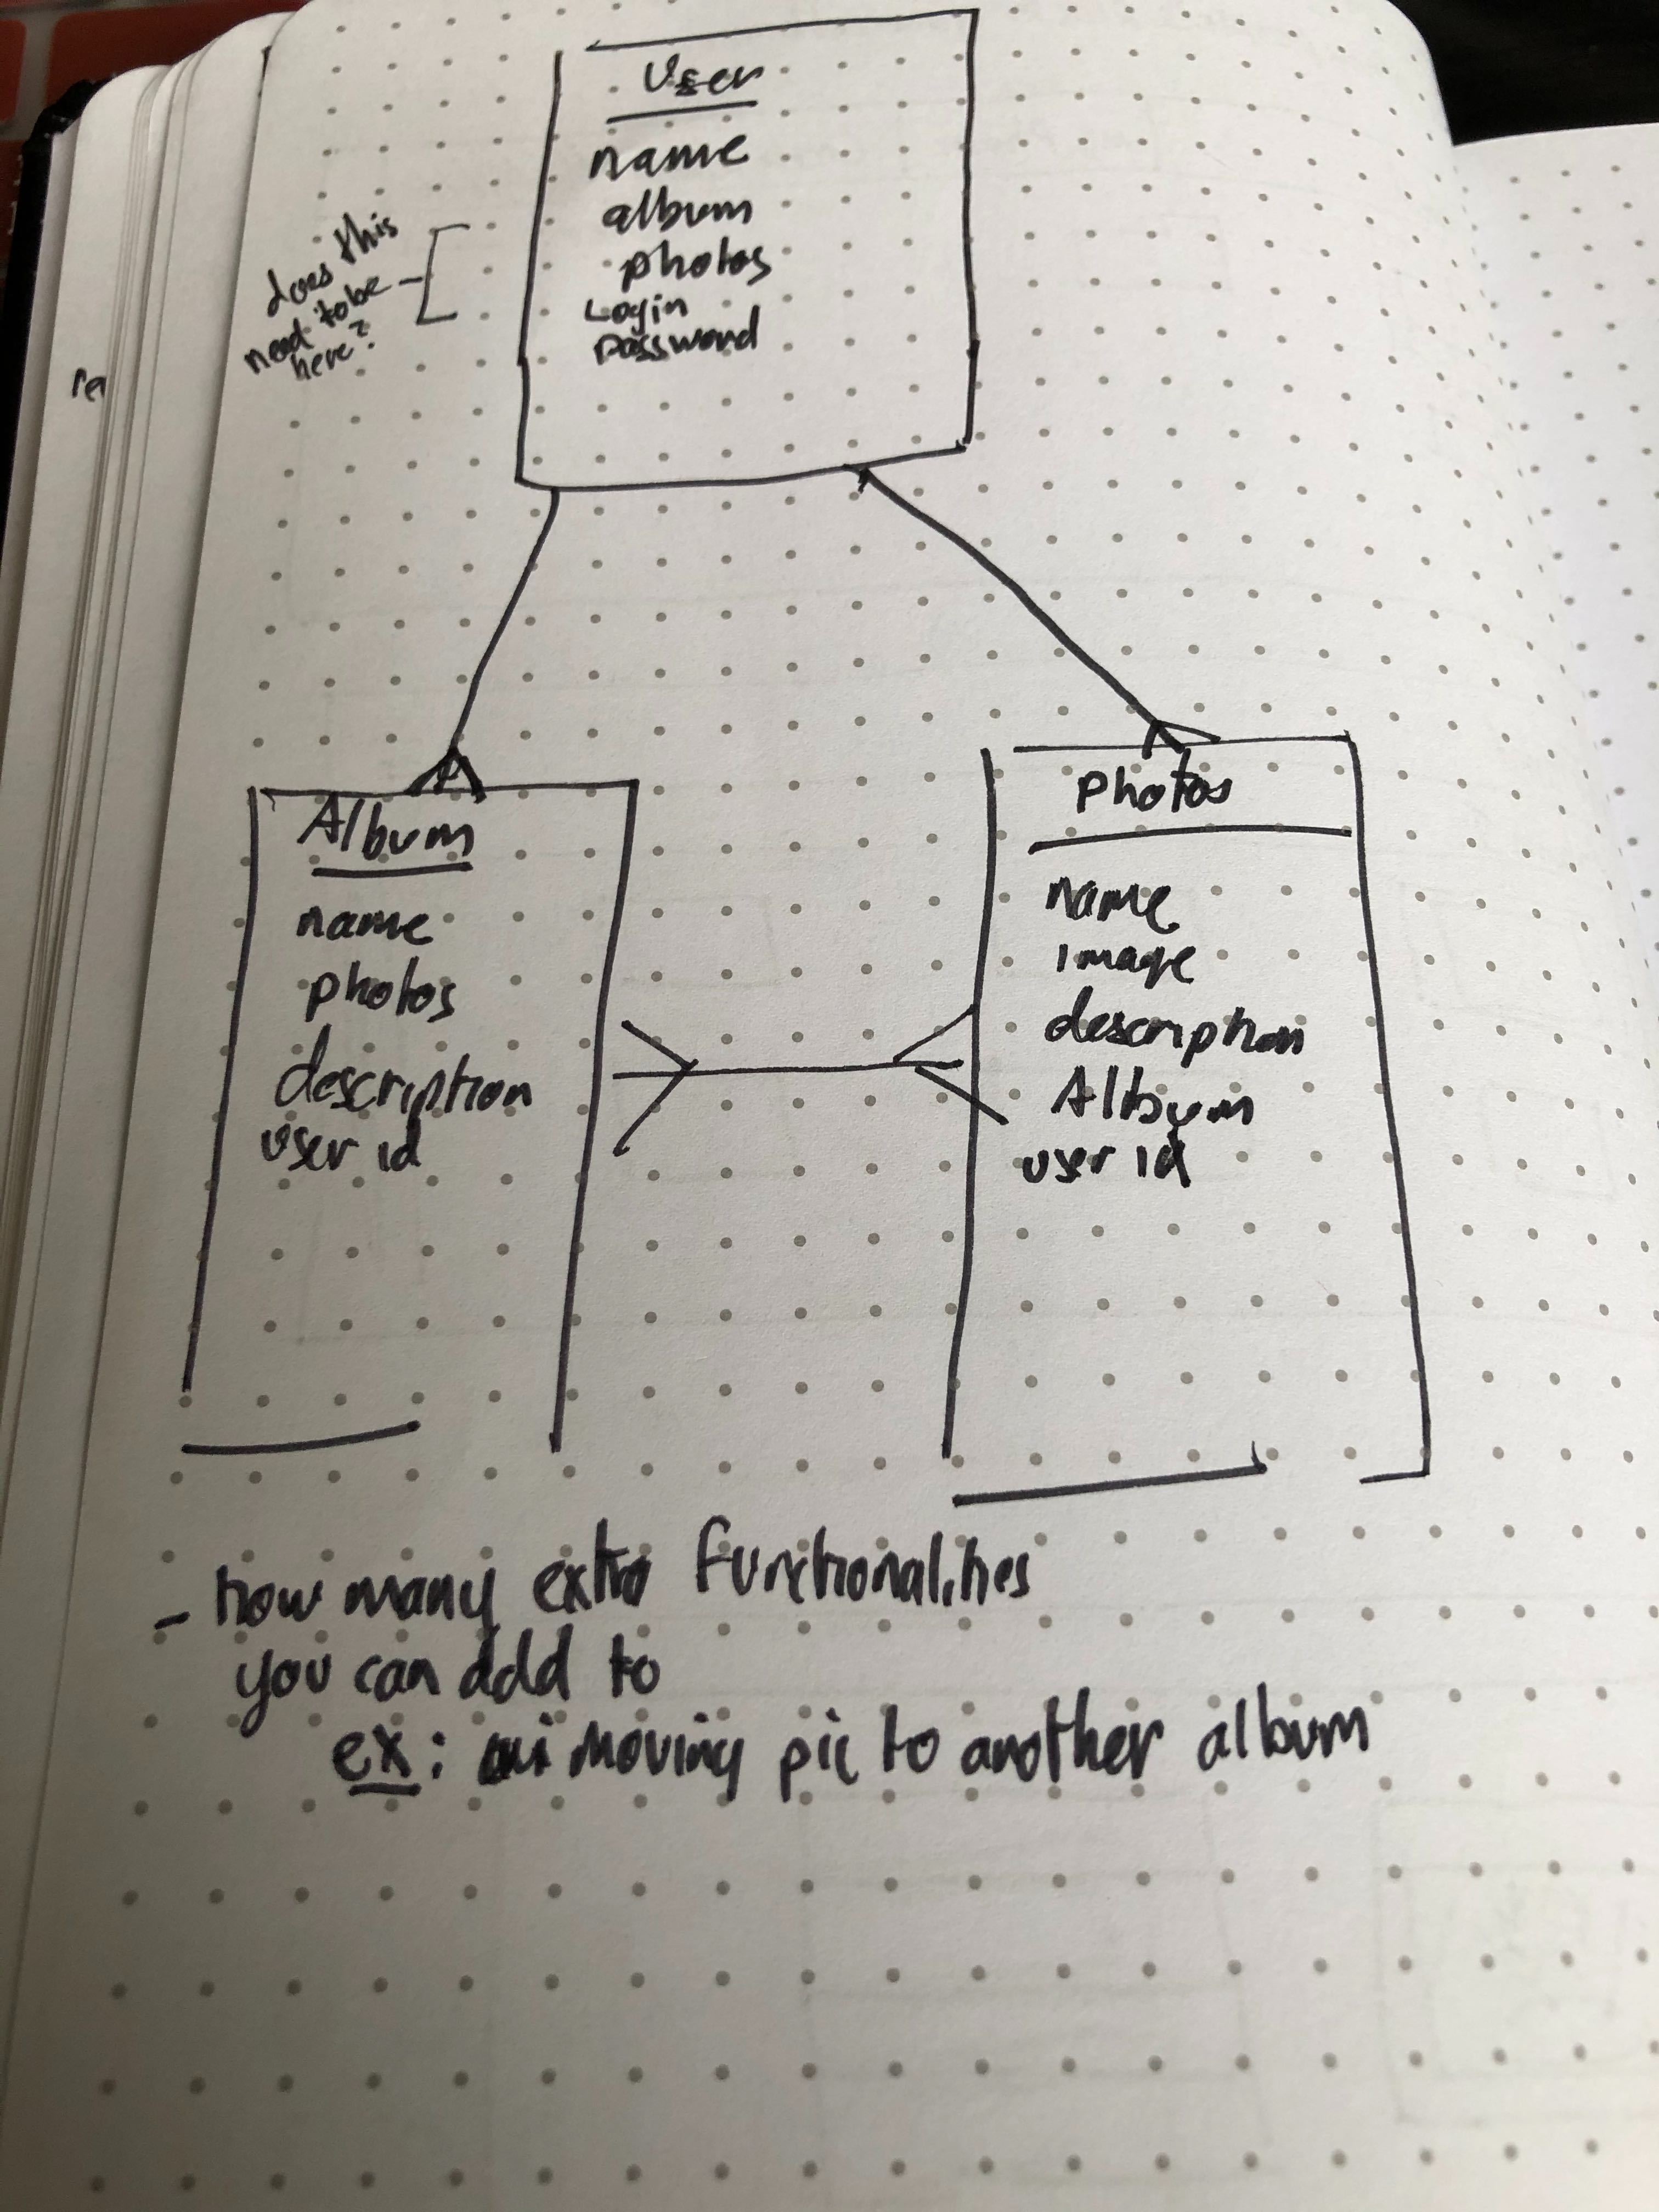 User
name
album
photos
Login
password
does this
need to be
here?
Album
name
photos
description
user id
photos
name
image
description
Album
user id
- how many extra functionalities
you can add to
ex: moving pic to another album